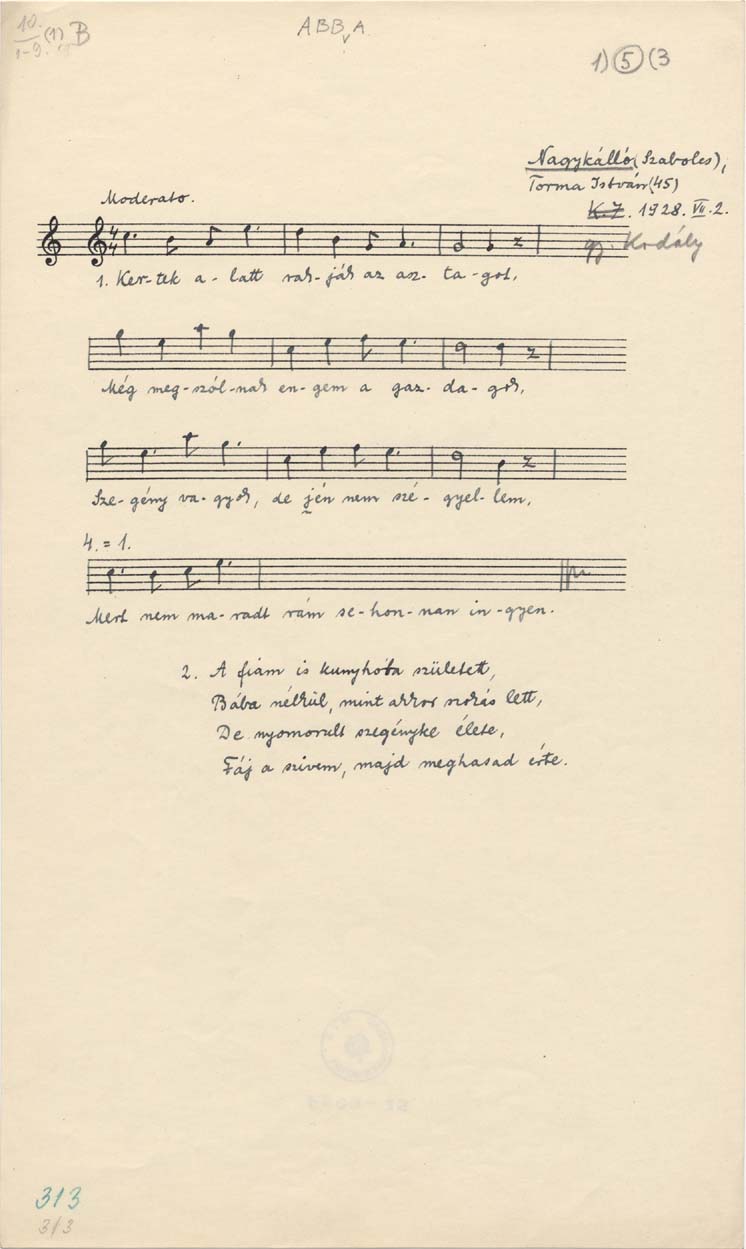 10. (1) B
1-9.
ABBvA
1) 5 (3
Nagykálló (Szabolcs),
Torma István (45)
K.Z. 1928. VII. 2.
gy. Kodály
Moderato.
4
4
1. Ker-tek a-latt rak-ják az asz-ta-got,
Még meg-szól-nak en-gem a gaz-da-gok,
Sze-gény va-gyok, de jén nem szé-gyel-lem,
4. = 1.
Mert nem ma-radt rám se-hon-nan in-gyen.
2. A fiam is kunyhóba született,
Bába nélkül, mint akkor szokás lett,
De nyomorult szegényke élete,
Fáj a szivem, majd meghasad érte.
313
313